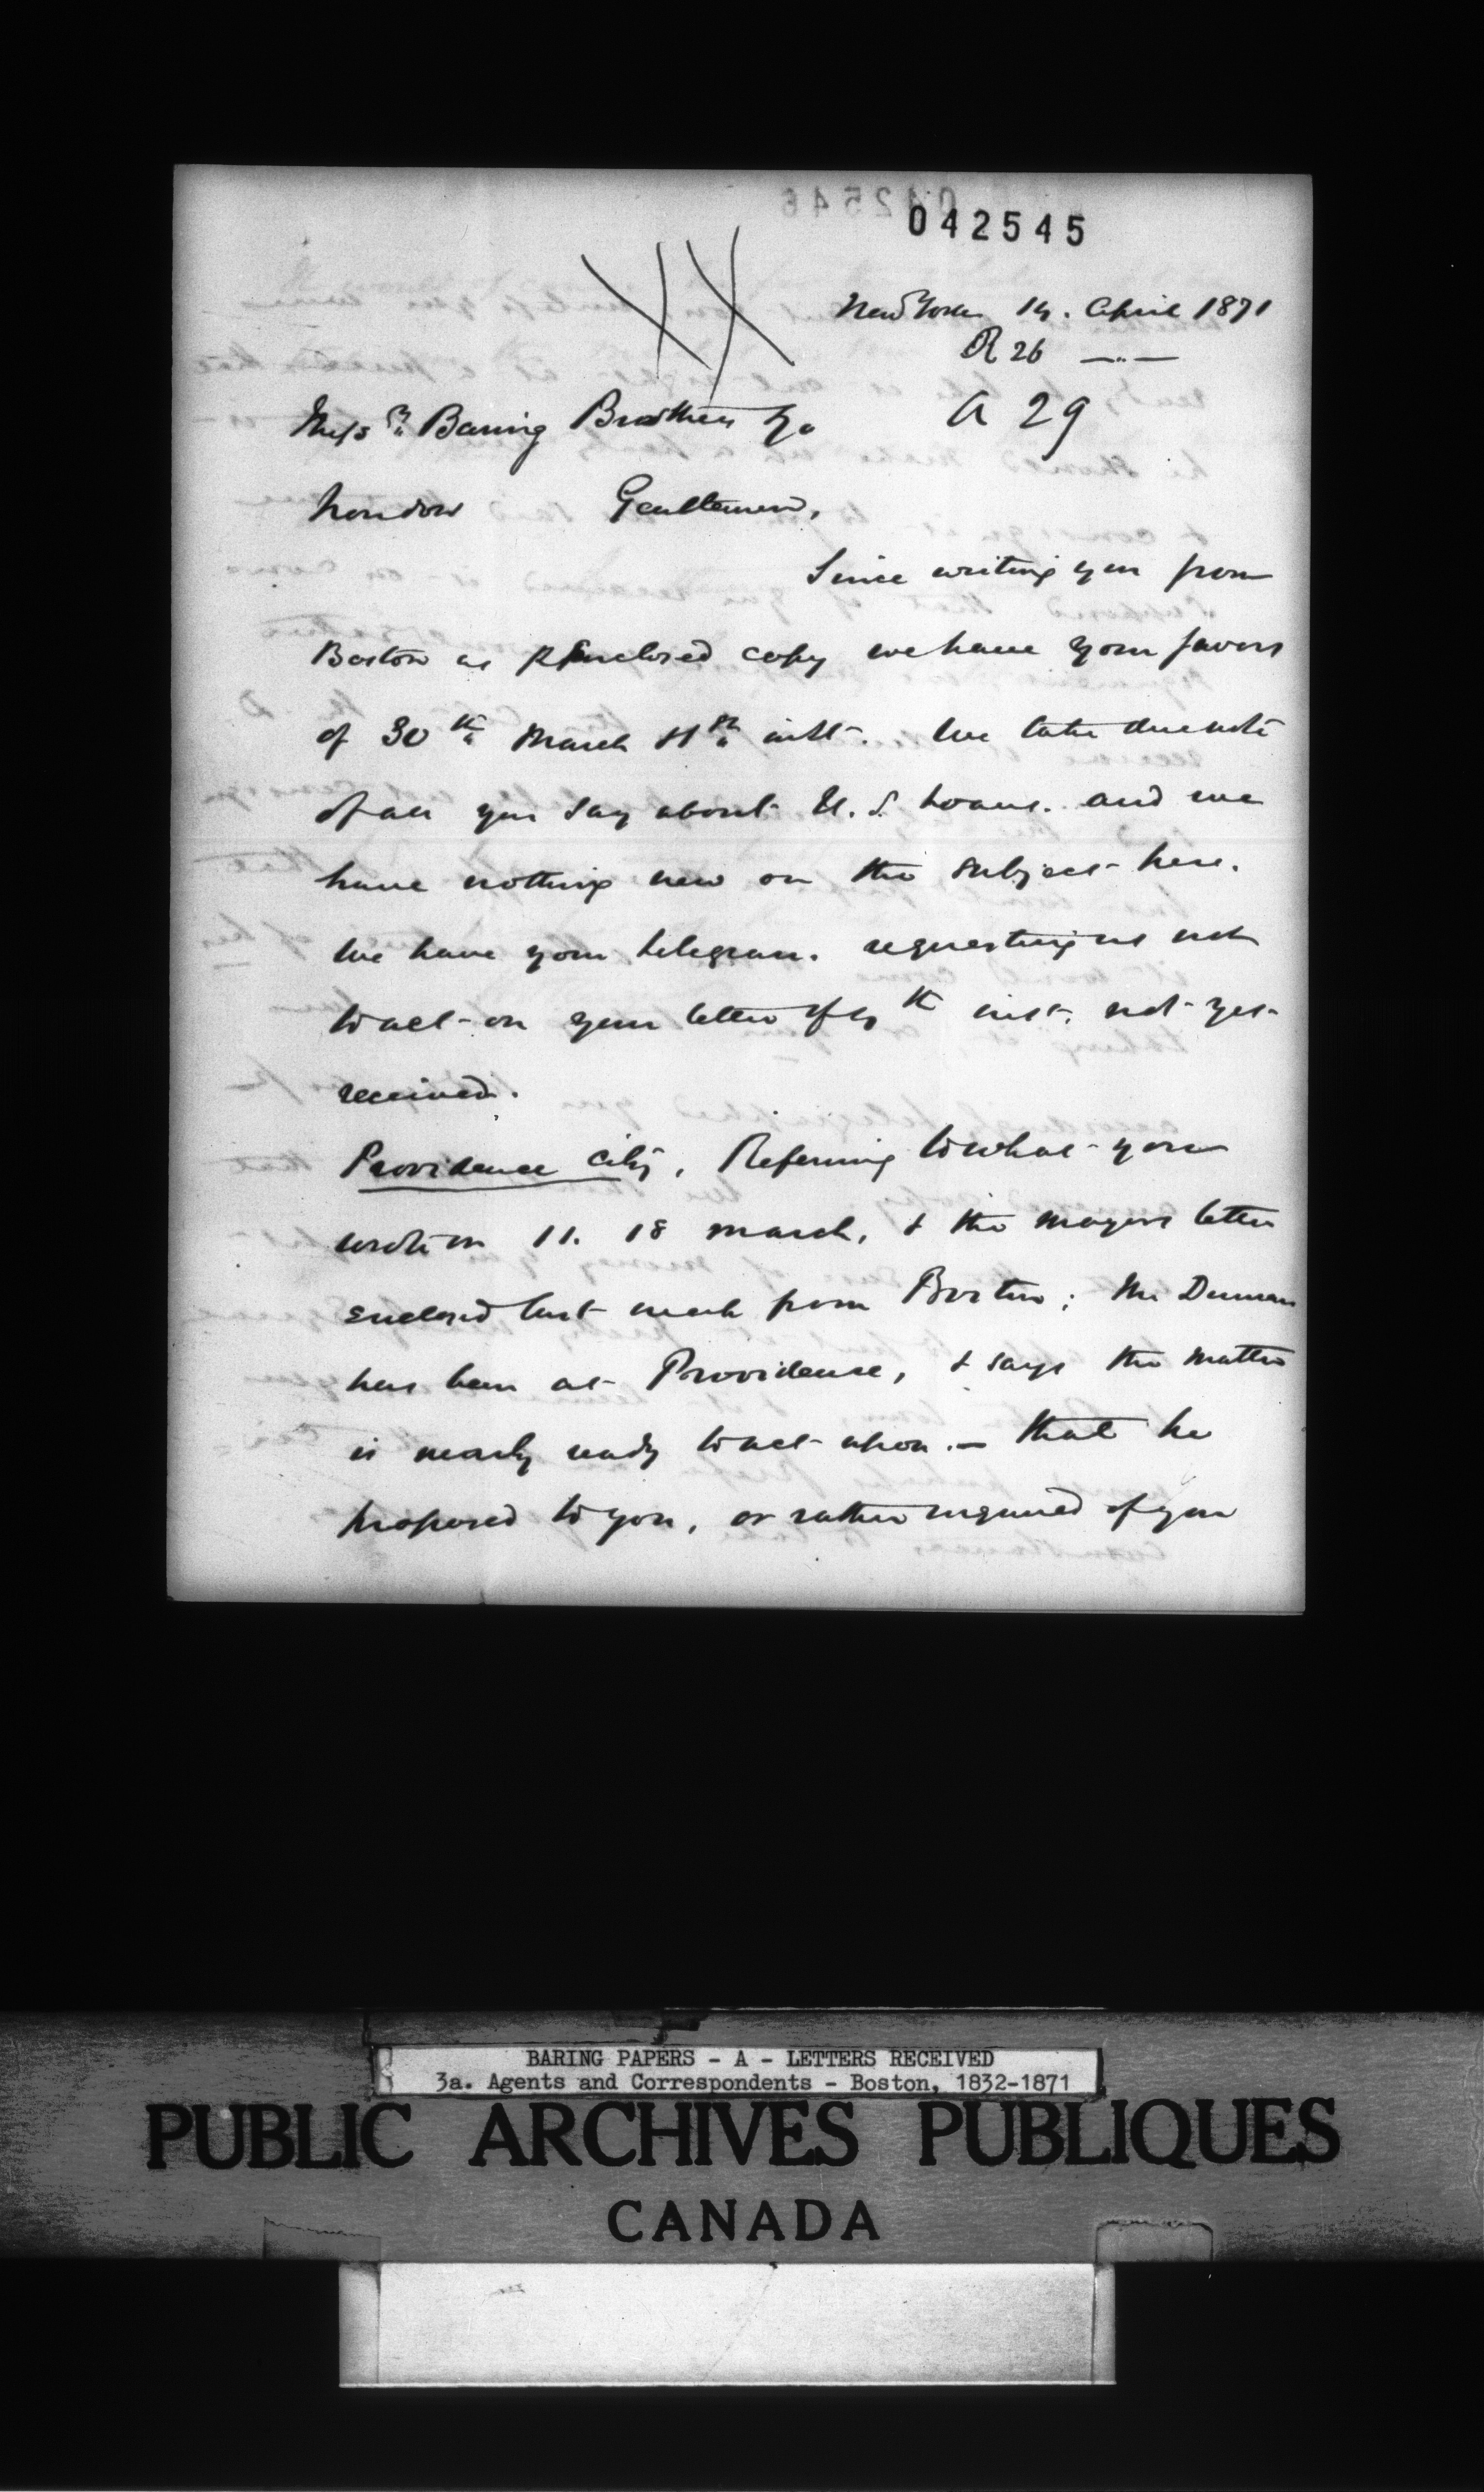 042545
New York 14. April 1871
R 26
A 29
Messrs Baring Brothers & Co
London Gentlemen,
Since writing you from
Boston as enclosed copy we have your favors
of 30th March inst. We take due note
of all you say about U.S. Loans. and we
have nothing new on the subject here.
We have your telegram. requesting us not
to act on your letter of th inst. not yet
received.
Providence City. Referring to what you
wrote on 11. 18 March, & the mayors letter
enclosed last week from Boston; Mr
has been at Providence, & says the matter
is nearly ready to act upon. – that he
proposed to you, or rather inquired of you
BARING PAPERS - A - LETTERS RECEIVED
3a. Agents and Correspondents - Boston, 1832-1871
PUBLIC ARCHIVES PUBLIQUES
CANADA